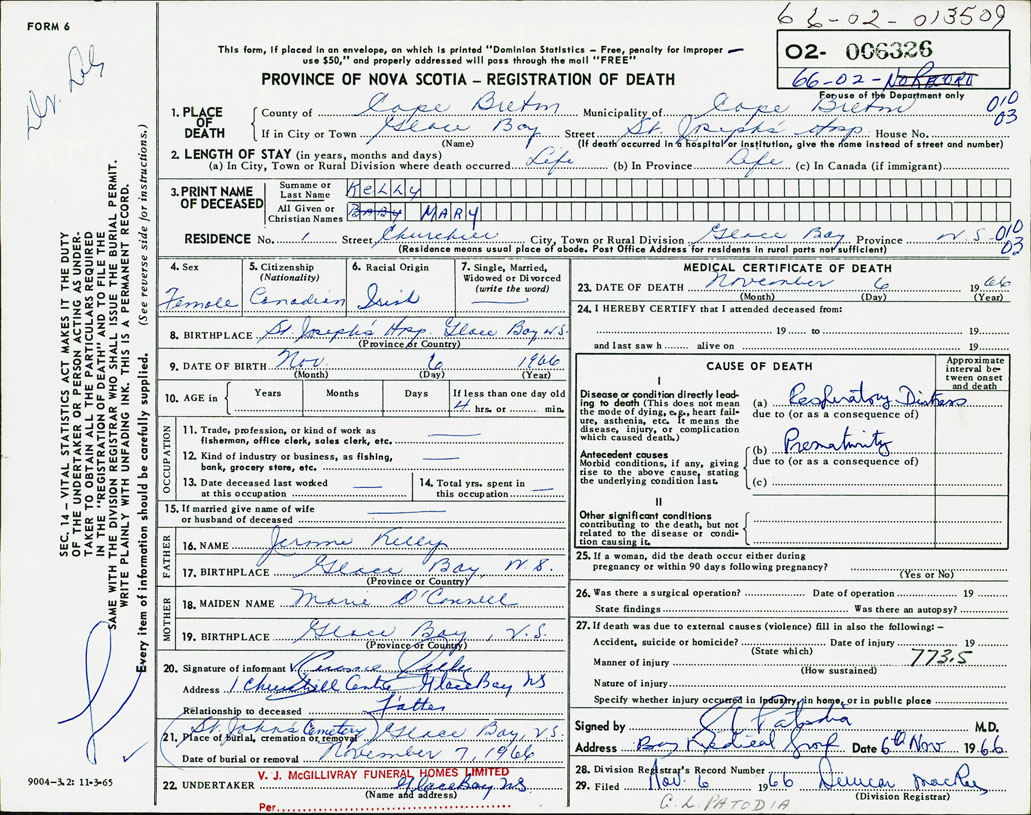 FORM 6
66-02-013509
O2- 006326
66-02-
For use of the Department only
This form, if placed in an envelope, on which is printed "Dominion Statistics – Free, penalty for improper
use $50," and properly addressed will pass through the mail "FREE"
PROVINCE OF NOVA SCOTIA – REGISTRATION OF DEATH
010
03
1. PLACE OF DEATH
County of Cape Breton Municipality of Cape Breton
If in City or Town Glace Bay Street St. Joseph's Hosp. House No.
(Name) (If death occurred in hospital or institution, give the name instead of street and number)
2. LENGTH OF STAY (in years, months and days)
(a) In City, Town or Rural Division where death occurred Life (b) In Province Life (c) In Canada (if immigrant)
3. PRINT NAME OF DECEASED
Surname or Last Name KELLY
All Given or Christian Names BABY MARY
RESIDENCE No. 1 Street City, Town or Rural Division Glace Bay Province N.S. 010
03
(Residence means usual place of abode. Post Office Address for residents in rural parts not sufficient)
4. Sex
Female
5. Citizenship
(Nationality)
Canadian
6. Racial Origin
Irish
7. Single, Married,
Widowed or Divorced
(write the word)
8. BIRTHPLACE St. Joseph's Hosp. Glace Bay N.S.
(Province or Country)
9. DATE OF BIRTH Nov. 6 1966
(Month) (Day) (Year)
10. AGE in Years Months Days If less than one day old
4 hrs. or min.
OCCUPATION
11. Trade, profession, or kind of work as
fisherman, office clerk, sales clerk, etc.
12. Kind of industry or business, as fishing,
bank, grocery store, etc.
13. Date deceased last worked
at this occupation
14. Total yrs. spent in
this occupation
15. If married give name of wife
or husband of deceased
FATHER
16. NAME Jerome Kelly
17. BIRTHPLACE Glace Bay, N.S.
(Province or Country)
MOTHER
18. MAIDEN NAME Marie O'Connell
19. BIRTHPLACE Glace Bay, N.S.
(Province or Country)
20. Signature of informant
Address 1 Churchill Glace Bay NS
Relationship to deceased Father
21. Place of burial, cremation or removal St. John's Cemetery Glace Bay, N.S.
Date of burial or removal November 7, 1966
V. J. McGILLIVRAY FUNERAL HOMES LIMITED
22. UNDERTAKER Glace Bay NS
(Name and address)
Per
MEDICAL CERTIFICATE OF DEATH
23. DATE OF DEATH November 6 1966
(Month) (Day) (Year)
24. I HEREBY CERTIFY that I attended deceased from:
19 to 19
and last saw h alive on 19
CAUSE OF DEATH
Approximate interval between onset and death
I
Disease or condition directly leading to death (This does not mean
the mode of dying, e.g., heart failure, asthenia, etc. It means the
disease, injury, or complication
which caused death.)
(a) Respiratory Distress
due to (or as a consequence of)
Antecedent causes
Morbid conditions, if any, giving
rise to the above cause, stating
the underlying condition last.
(b) Prematurity
due to (or as a consequence of)
(c)
II
Other significant conditions
contributing to the death, but not
related to the disease or condition causing it.
25. If a woman, did the death occur either during
pregnancy or within 90 days following pregnancy?
(Yes or No)
26. Was there a surgical operation? Date of operation 19
State findings Was there an autopsy?
27. If death was due to external causes (violence) fill in also the following: –
Accident, suicide or homicide? Date of injury 19
(State which)
773.5
Manner of injury
(How sustained)
Nature of injury
Specify whether injury occurred in industry, in home, or in public place
Signed by Patodia M.D.
Address Bay Medical Date 6th Nov 1966
28. Division Registrar's Record Number
29. Filed Nov. 6 1966
(Division Registrar)
G. L. PATODIA
SEC. 14 – VITAL STATISTICS ACT MAKES IT THE DUTY
OF THE UNDERTAKER OR PERSON ACTING AS UNDERTAKER TO OBTAIN ALL THE PARTICULARS REQUIRED
IN THE "REGISTRATION OF DEATH" AND TO FILE THE
SAME WITH THE DIVISION REGISTRAR WHO SHALL ISSUE THE BURIAL PERMIT.
WRITE PLAINLY WITH UNFADING INK. THIS IS A PERMANENT RECORD.
Every item of information should be carefully supplied. (See reverse side for instructions.)
9004-3.2: 11-3-65